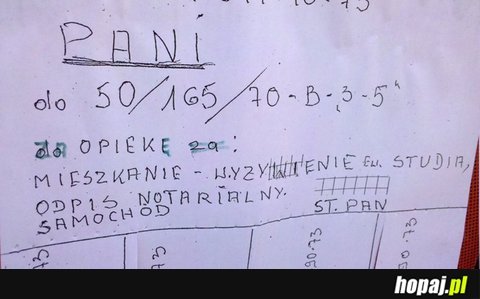 10-73
PANI
do 50/165/70-B-"3-5"
do OPIEKĘ za:
MIESZKANIE - WYZYWIENIE EW. STUDIA,
ODPIS NOTARIALNY.
SAMOCHÓD
ST. PAN
73
73
90-73
90-73
hopaj.pl